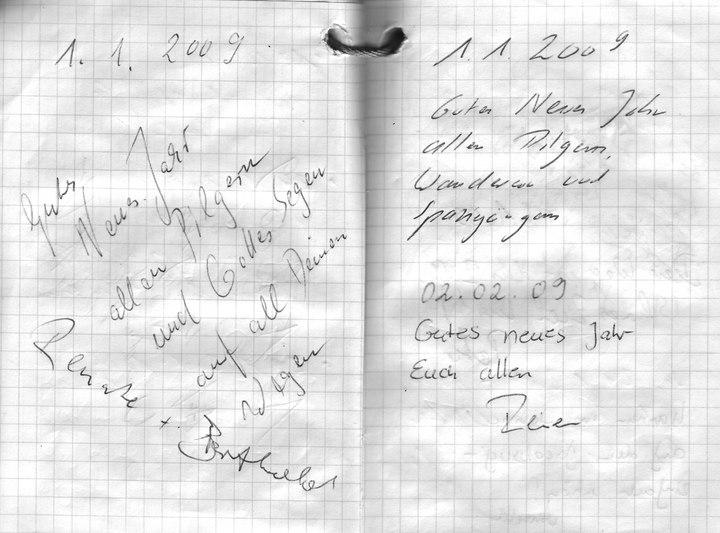 1. 1. 2009
Gutes
Neues Jahr
allen Pilgern
und Gottes Segen
auf all Deinen
Wegen
Renate
+
1. 1. 2009
Gutes Neues Jahr
allen Pilgern,
Wanderern und
Spaziergängern
02.02.09
Gutes neues Jahr
Euch allen